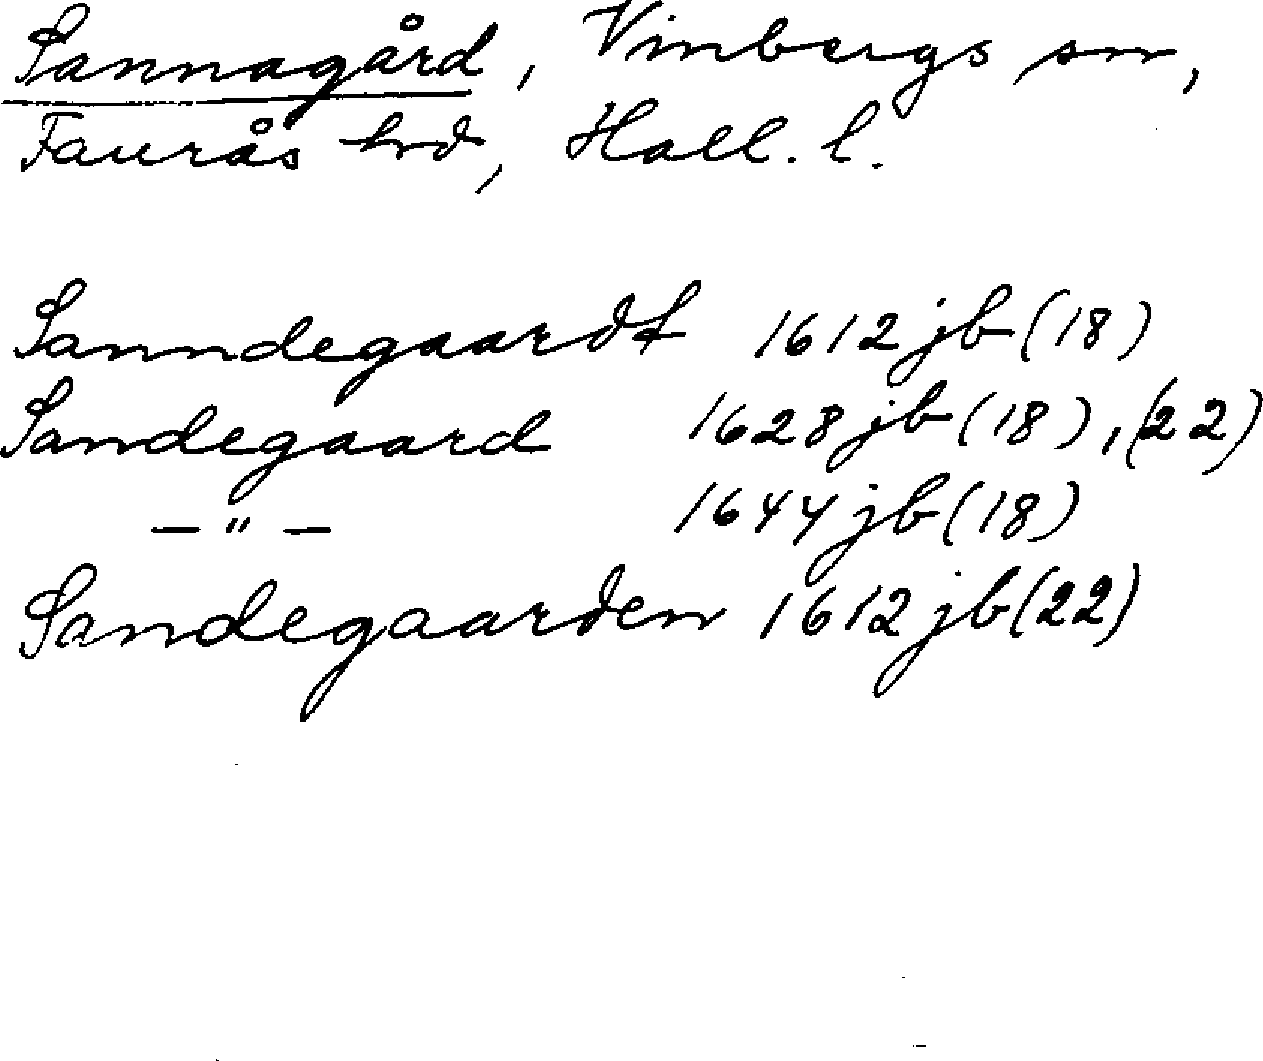 Sannagård, Vinbergs sn,
Faurås hrd, Hall. l.
Sanndegaardt 1612 jb (18)
Sandegaard 1628 jb (18), (22)
— " — 1644 jb (18)
Sandegaarden 1612 jb (22)